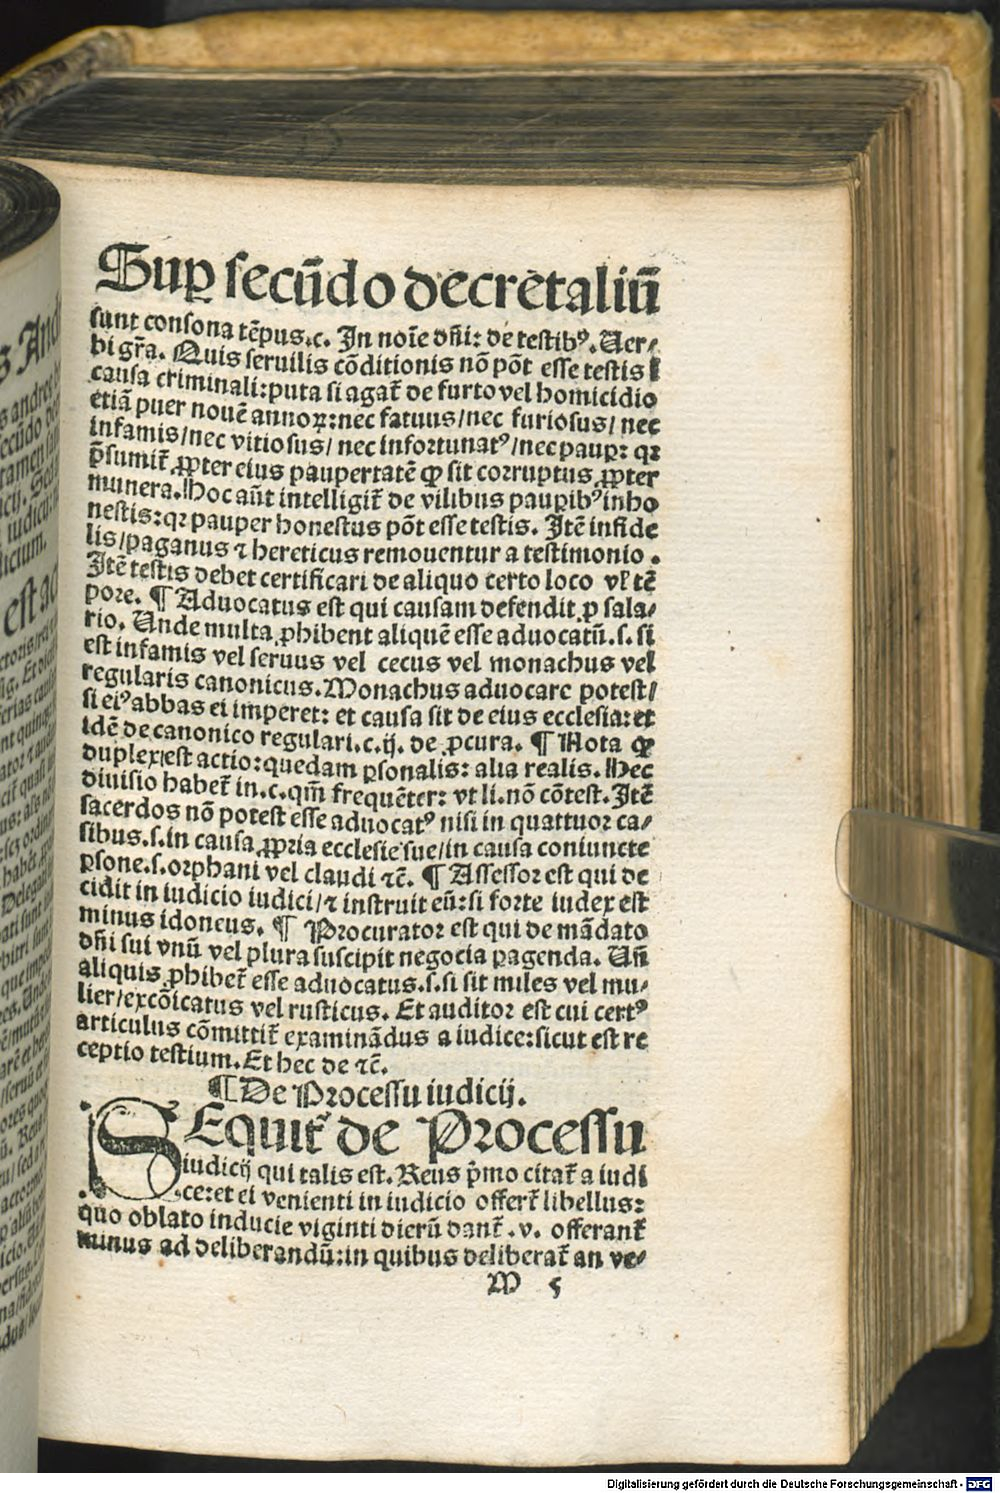 Sup̱ secũdo decretaliũ
sunt consona tẽpus.c. In noĩe dñi: de testibꝰ. Uer⸗
bi gr̃a. Quis seruilis cõditionis nõ põt esse testis ĩ
causa criminali: puta si agat̃ de furto vel homicidio
etiã puer nouẽ annoꝝ: nec fatuus/ nec furiosus/ nec
infamis/ nec vitiosus/ nec infortunatꝰ/ nec paup̱: qꝛ
p̃sumit̃ ꝓpter eius paupertatẽ ꝙ sit corruptus ꝓpter
munera. Hoc aũt intelligit̃ de vilibus paup̱ibꝰ inho
nestis: qꝛ pauper honestus põt esse testis. Itẽ infide
lis/ paganus ⁊ hereticus remouentur a testimonio.
Itẽ testis debet certificari de aliquo certo loco vl̃ tẽ
pore. ¶ Aduocatus est qui causam defendit ꝓ sala⸗
rio. Unde multa ꝓhibent aliquẽ esse aduocatũ. s. si
est infamis vel seruus vel cecus vel monachus vel
regularis canonicus. Monachus aduocare potest/
si eiꝰ abbas ei imperet: et causa sit de eius ecclesia: et
idẽ de canonico regulari. c. ij. de ꝓcura. ¶ Nota ꝙ
duplex est actio: quedam ꝑsonalis: alia realis. Hec
diuisio habet̃ in. c. qm̃ frequẽter: vt li. nõ cõtest. Itẽ
sacerdos nõ potest esse aduocatꝰ nisi in quattuor ca⸗
sibus. s. in causa ꝓpria ecclesie sue/ in causa coniuncte
ꝑsone. s. orphani vel claudi ⁊c̃. ¶ Assessor est qui de
cidit in iudicio iudici/ ⁊ instruit eũ: si forte iudex est
minus idoneus. ¶ Procurator est qui de mãdato
dñi sui vnũ vel plura suscipit negocia ꝑagenda. Uñ
aliquis ꝓhibet̃ esse aduocatus. s. si sit miles vel mu⸗
lier/ excõicatus vel rusticus. Et auditor est cui certꝰ
articulus cõmittit̃ examinãdus a iudice: sicut est re
ceptio testium. Et hec de ⁊c̃.
¶ De Processu iudicij.
SEquit̃ de Processu
iudicij qui talis est. Reus p̃mo citat̃ a iudi
ce: et ei venienti in iudicio offert̃ libellus:
quo oblato inducie viginti dierũ dant̃. v. offerant̃
minus ad deliberandũ: in quibus deliberat̃ an ve⸗
M 5
Digitalisierung gefördert durch die Deutsche Forschungsgemeinschaft - DFG